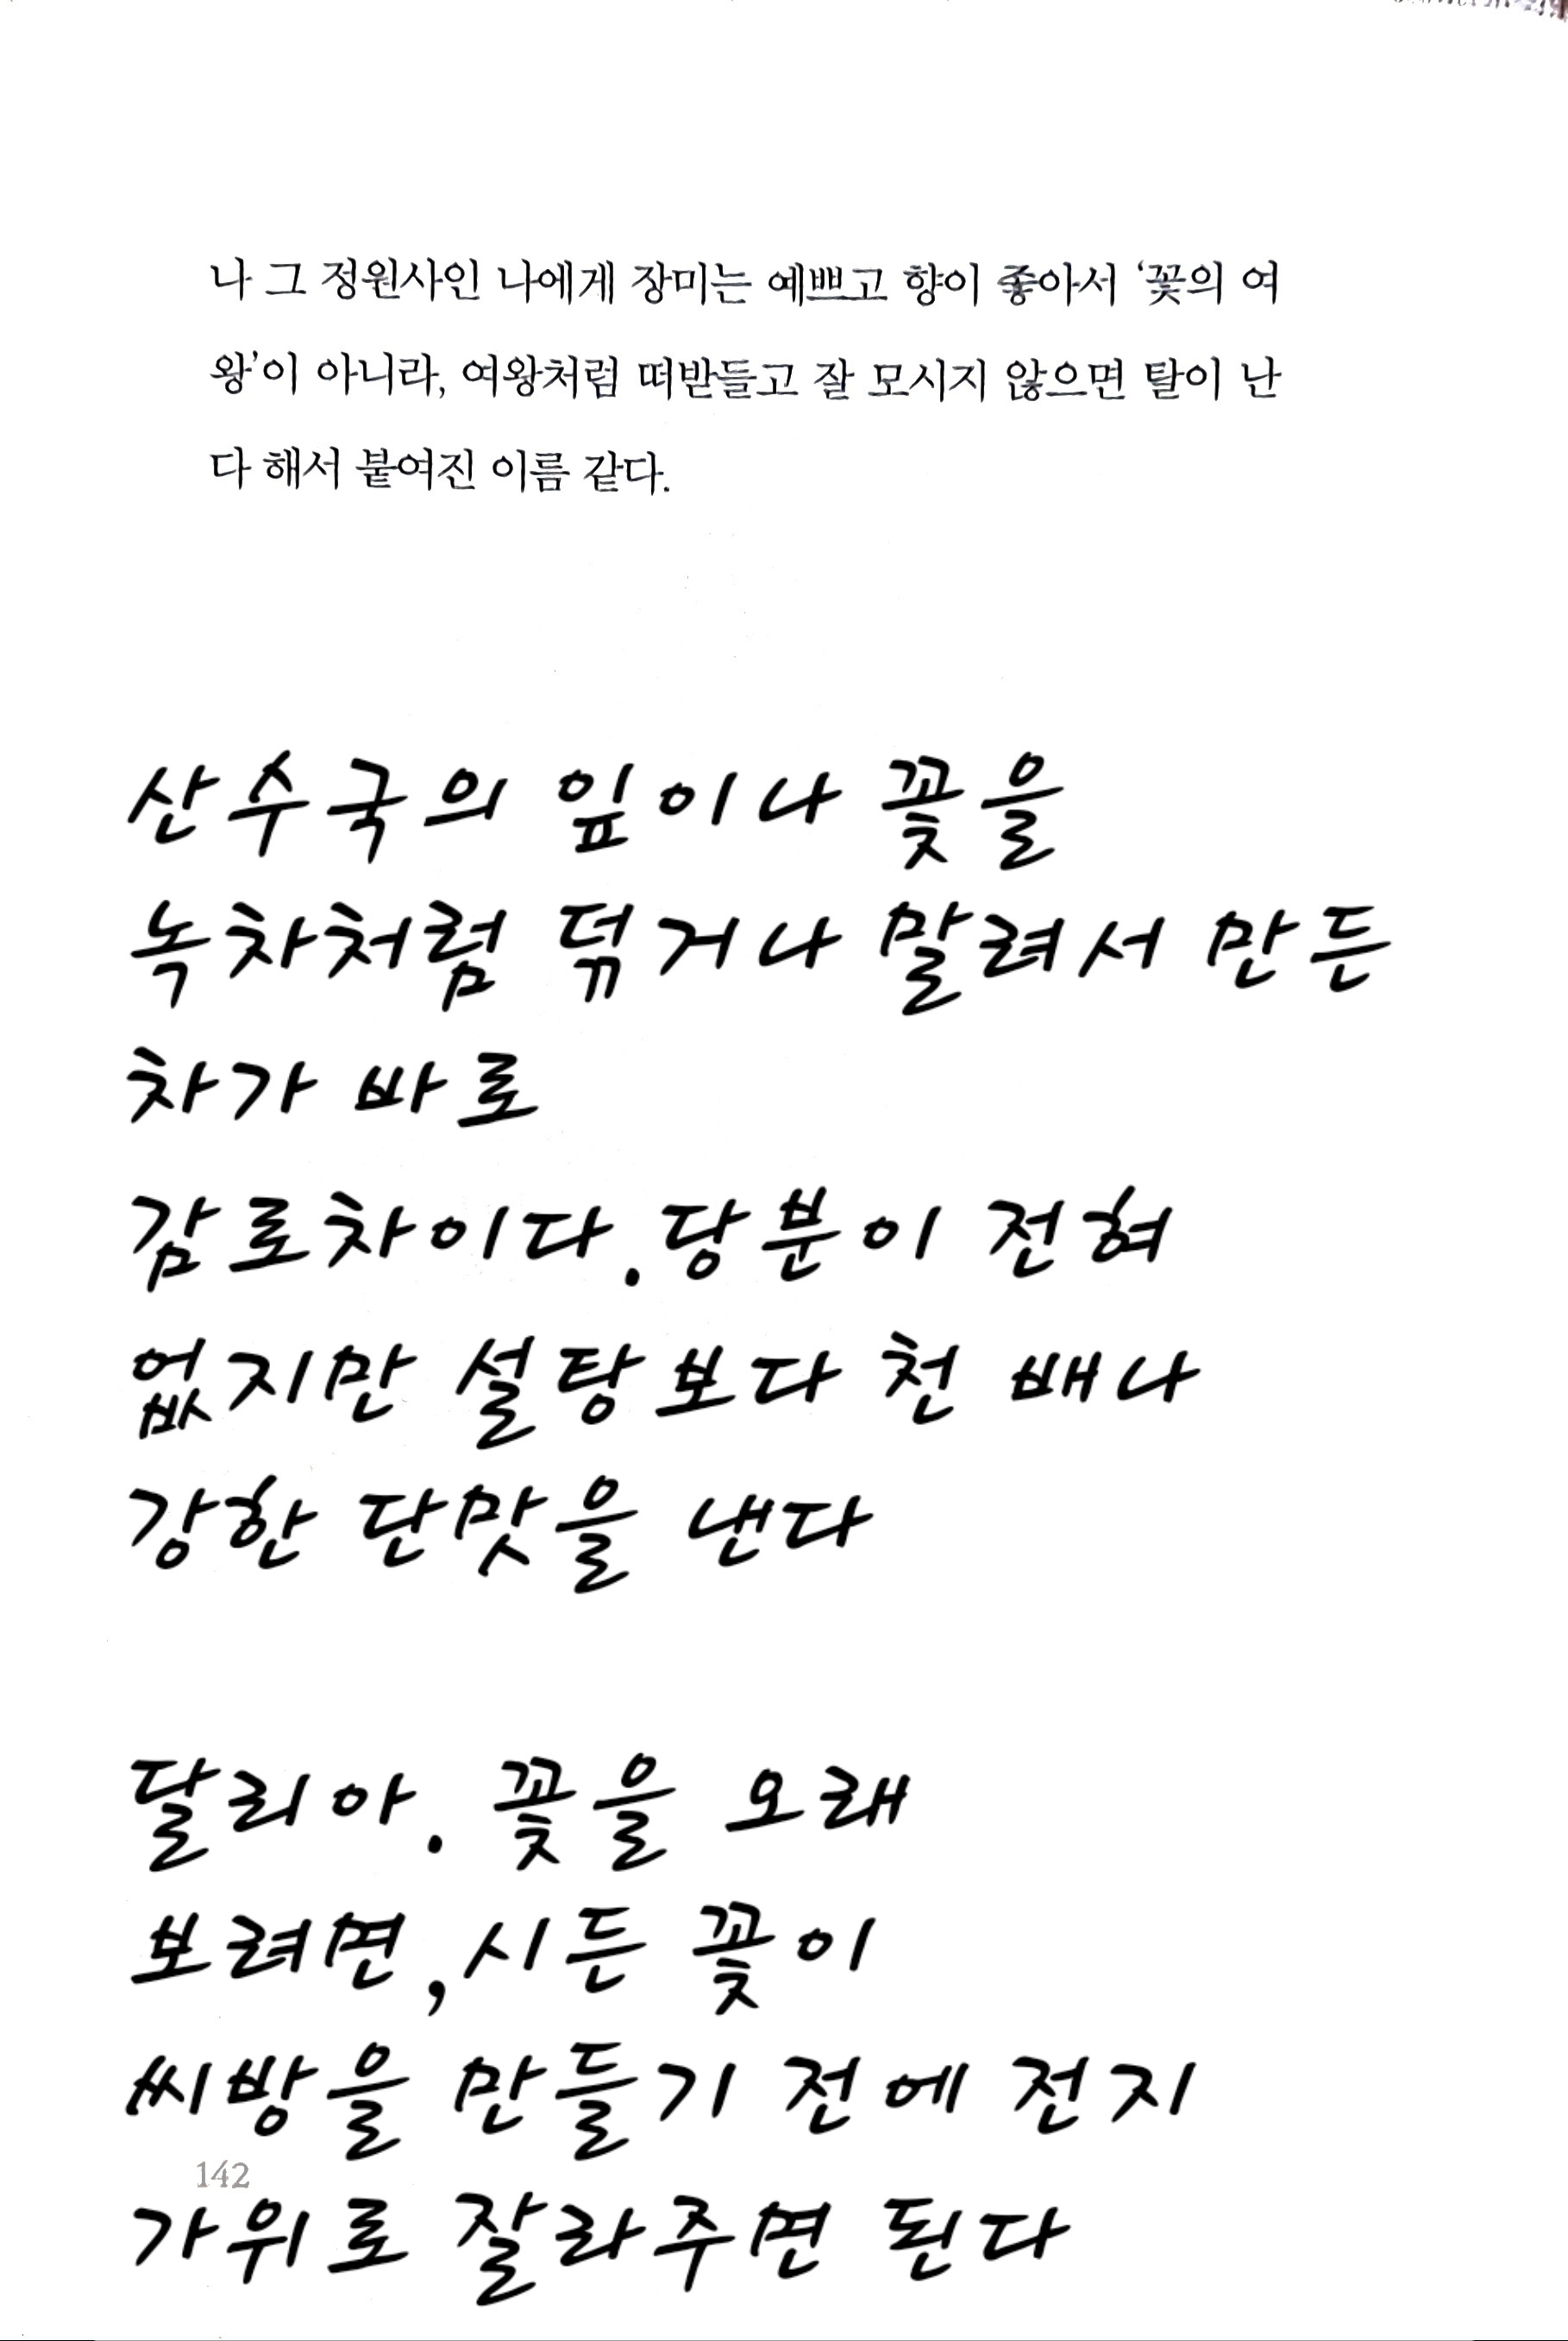 나 그 정원사인 나에게 장미는 예쁘고 향이 좋아서 ‘꽃의 여
왕’이 아니라, 여왕처럼 떠받들고 잘 모시지 않으면 탈이 난
다 해서 붙여진 이름 같다.
산수국의 잎이나 꽃을
녹차처럼 덖거나 말려서 만든
차가 바로
감로차이다. 당분이 전혀
없지만 설탕보다 천 배나
강한 단맛을 낸다
달리아. 꽃을 오래
보려면, 시든 꽃이
씨방을 만들기 전에 전지
142
가위로 잘라주면 된다